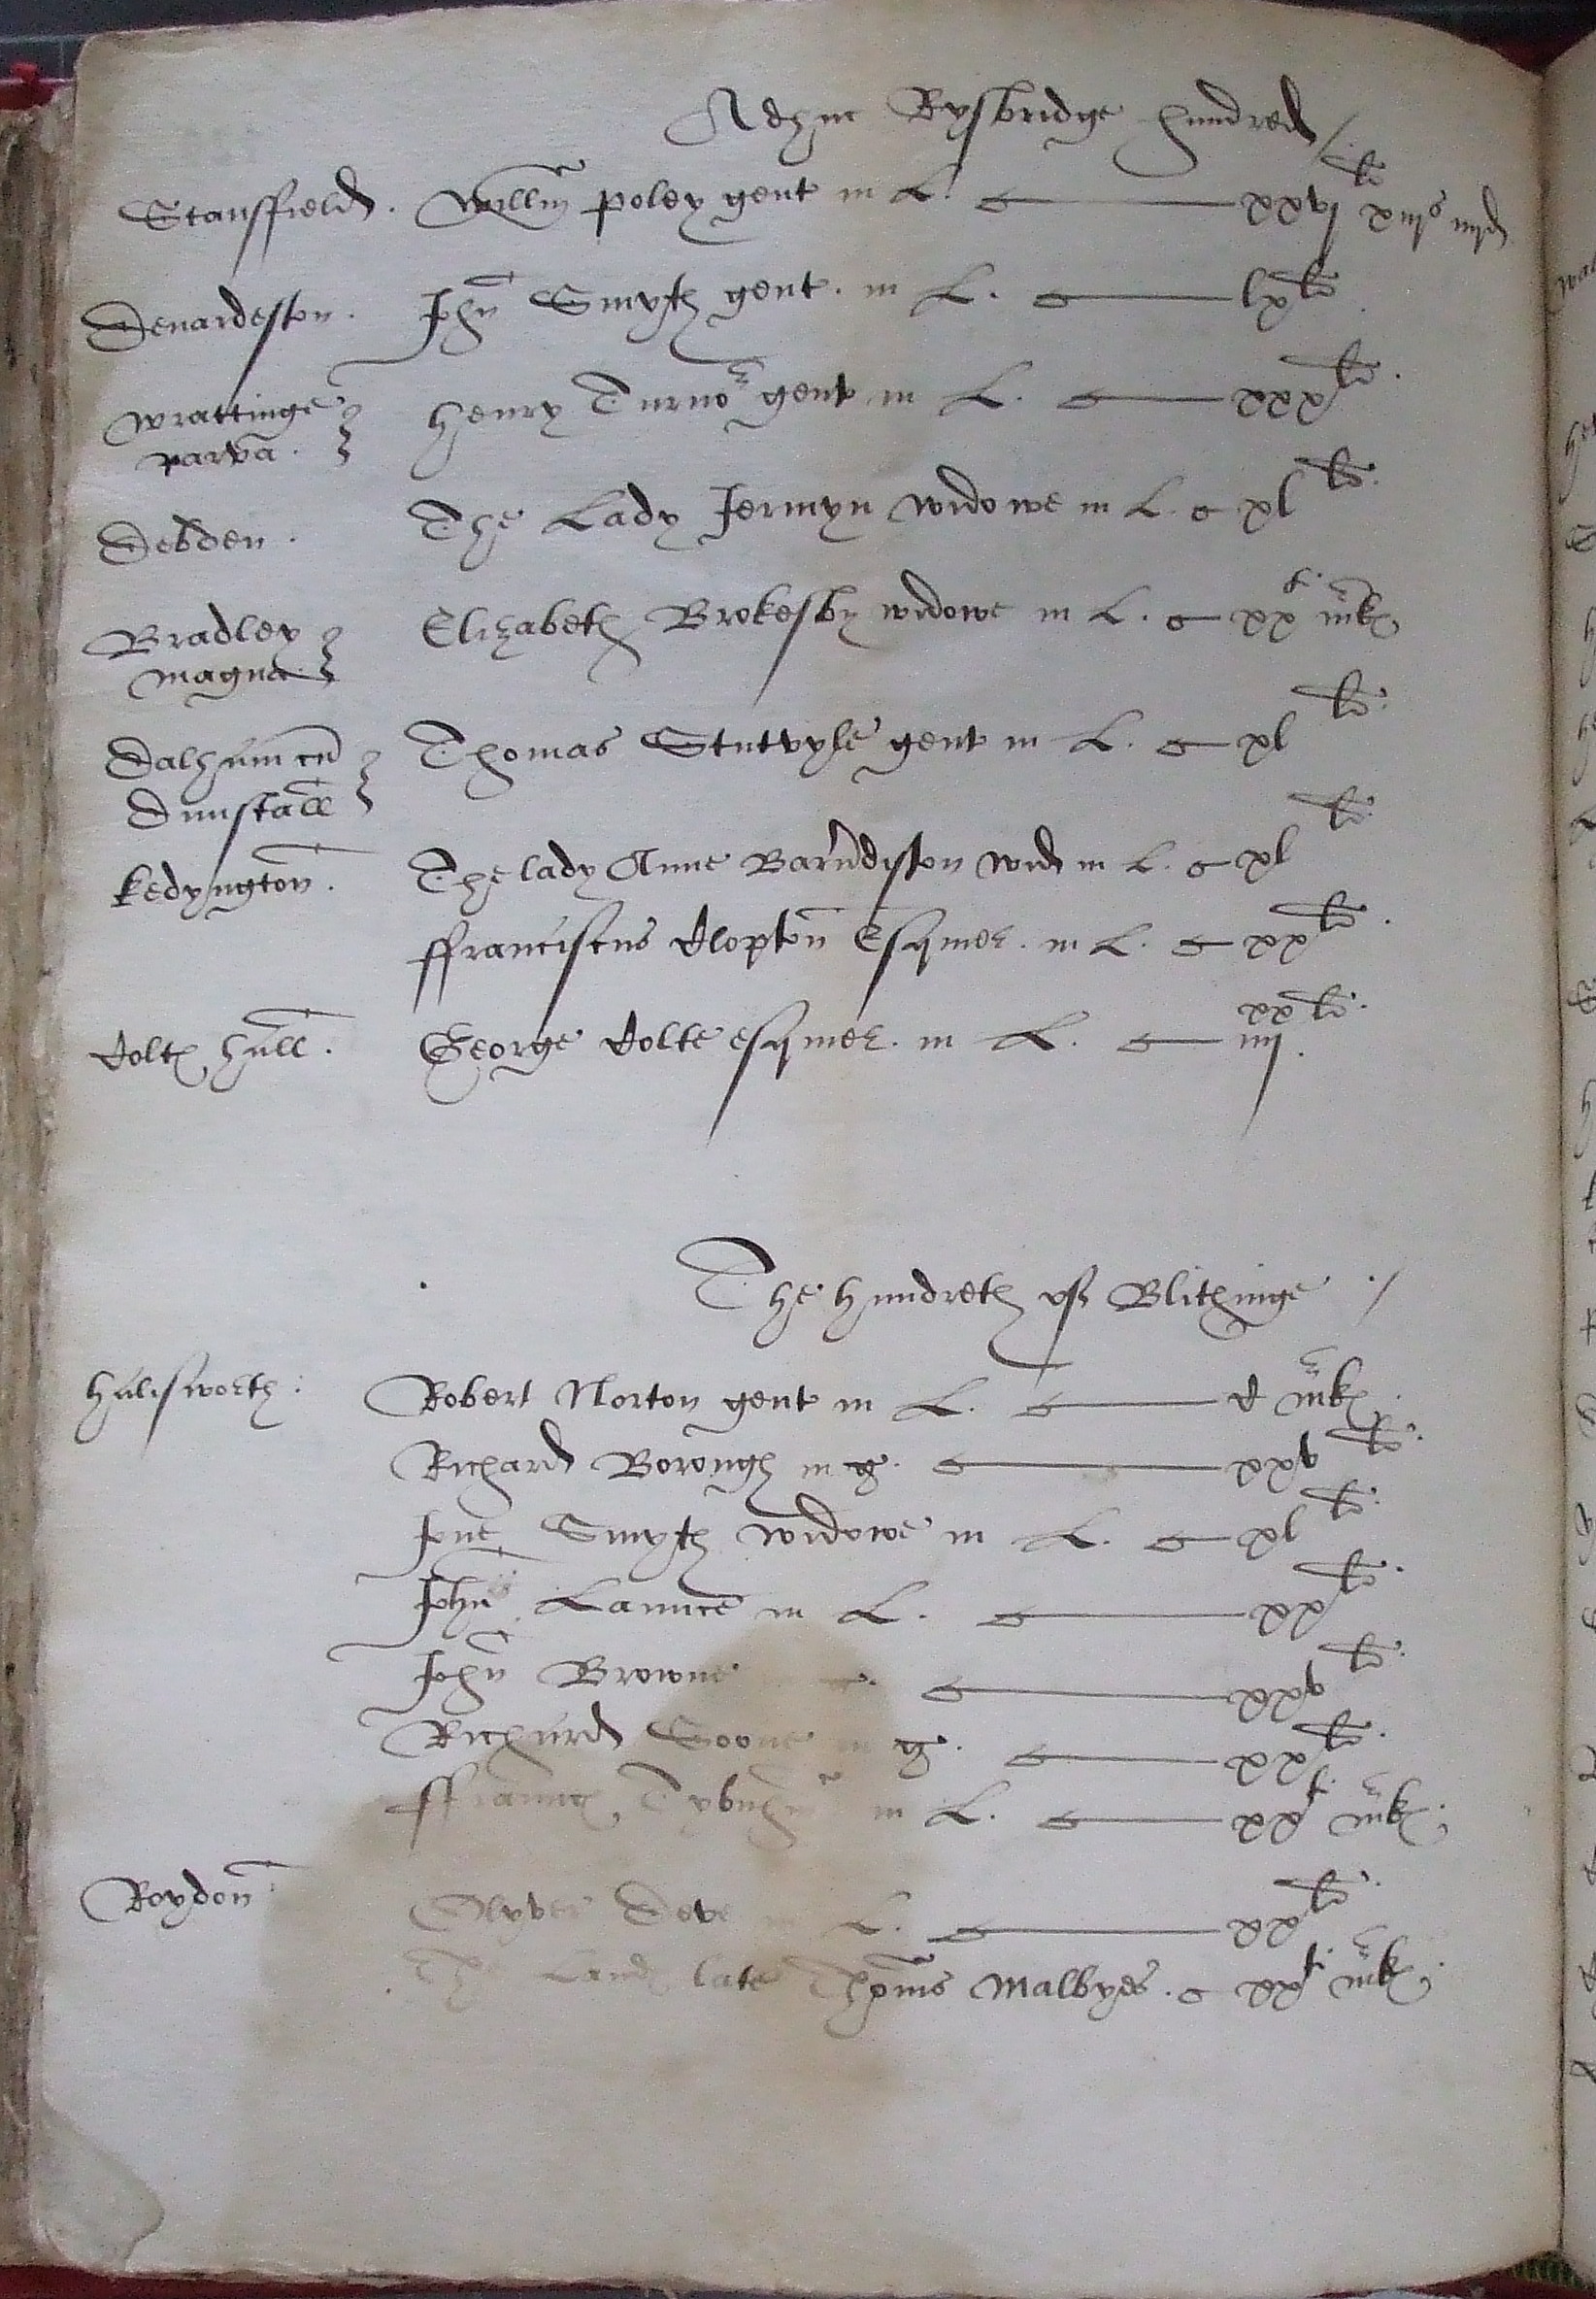 Adhuc Rysbridge hundred /.
Stansffield . Willm poley gent in L. xxvj li xiijs iiijd
Denardeston . John Smyth gent . in L . lx li
Wrattinge parva . henry Turnor gent in L . xxx li
Debden . The Lady Jermyn widowe in L . xl li
Bradley magna . Elizabeth Brokesby widowe in L . xx mks
Dalham cu Dunstall Thomas Stutvyle gent in L . xl li
kedyngton . The lady Anne Barndiston wid in L . xl li
ffranciscus Clopton Esquier . in L . xx li
Colts hall . George Colte esquier . in L . iiij xx li
The hundreth of Blithinge ./
halisworth : Robert Norton gent in L . C mks
Richard Borough in g . xxv li
Jone Smyth widowe in L . xl li
John Launce in L . xx li
John Browne xxv li
Richard Soone in g . xx li
ffrauncs in L . xx mks
Roydon Olyver Deve L . xx li
The Lands late Thoms Malbyes . xx mks